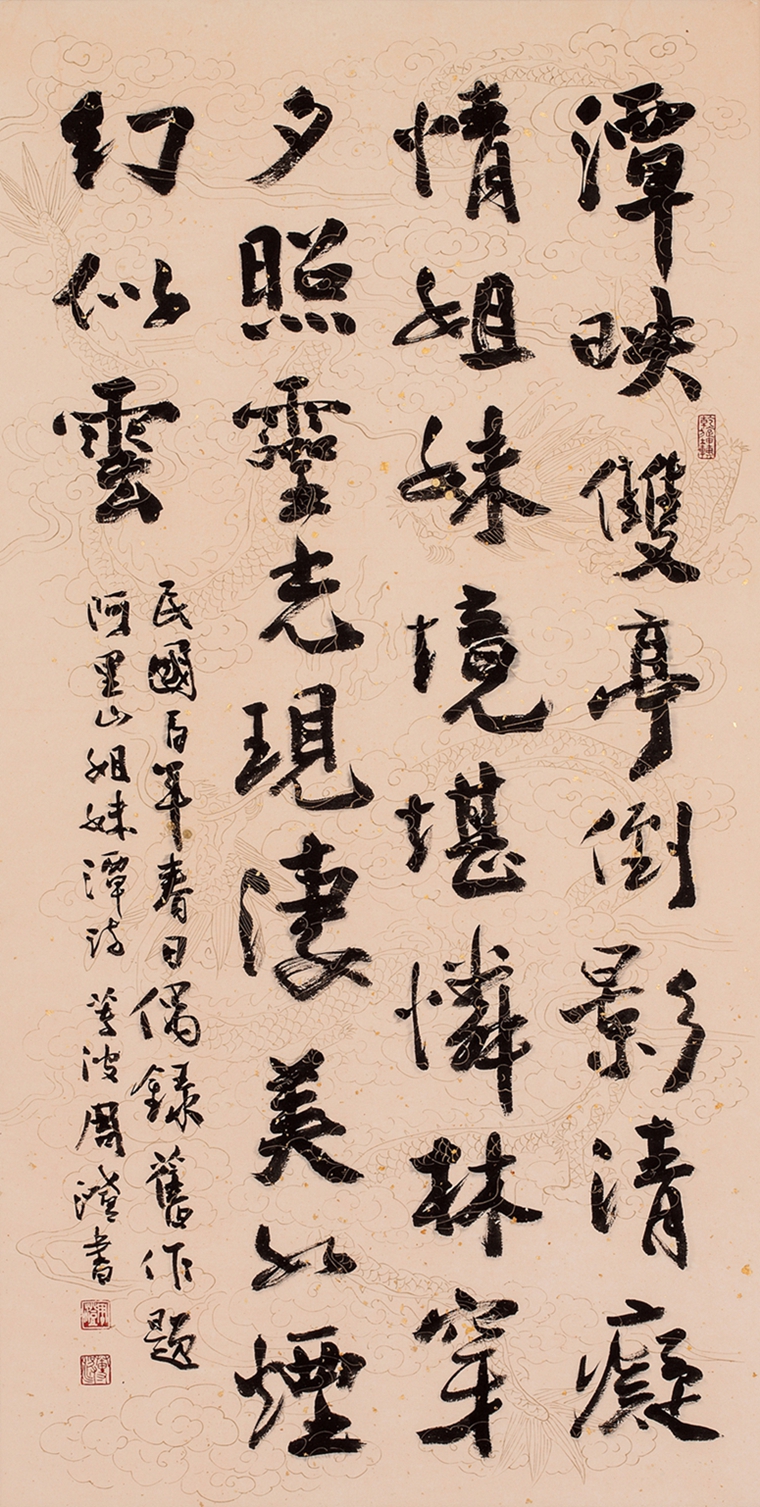 潭映雙亭倒影清癡
情姐妹境堪憐林穿
夕照靈光現淒美如煙
幻似雲
民國百年春日偶錄舊作題
阿里山姐妹潭詩 周澄書